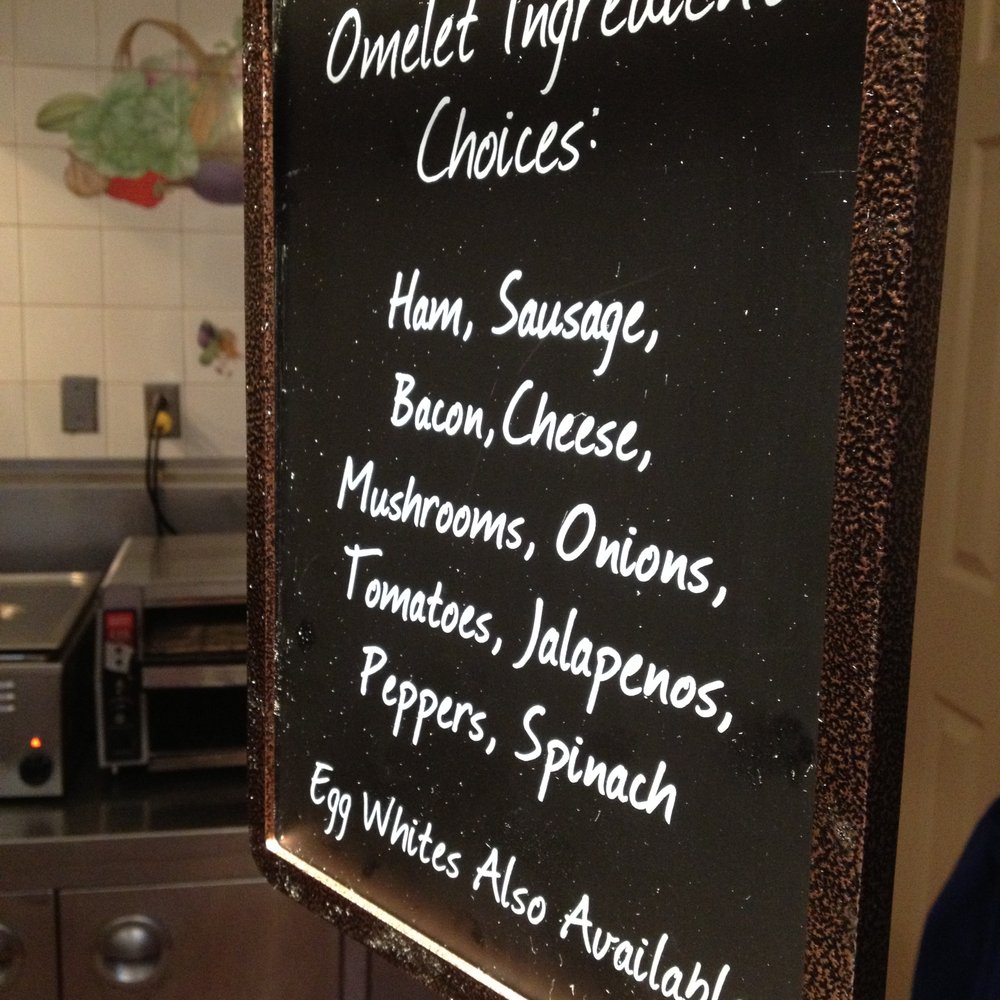 Omelet Ingredient
Choices:
Ham, Sausage,
Bacon, Cheese,
Mushrooms, Onions,
Tomatoes, Jalapenos,
Peppers, Spinach
Egg Whites Also Availabl